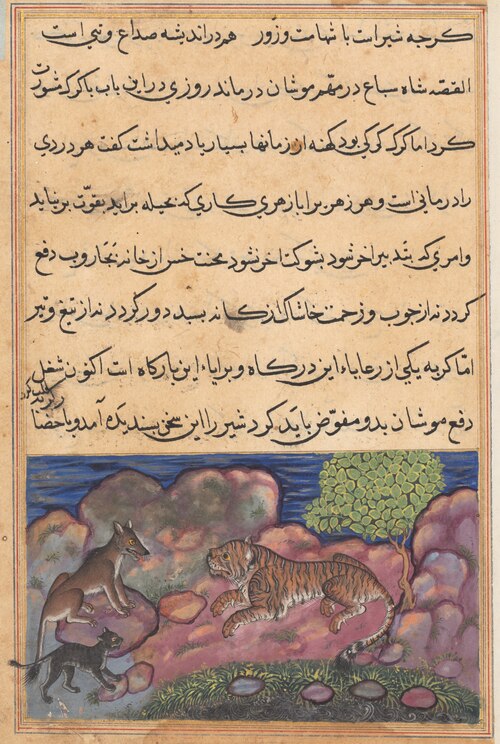 کرچه شیر است با شهامت وزور هم در اندیشه صداع و تبی است
القصه شاه سباع در مهم موشان درماند روزی در این باب با کرک مشورت
کرد اما کرک کرکی بود کهنه از زمانها بسیار یاد میداشت کفت هر دردی
را درمانی است و هر زهر برا بازهری کاری که بحیله براید بقوت برنیاید
وامری که بتدبیر اخر شود بشوکت اخر نشود محنت خس از خانه بجاروب دفع
کردد نه از چوب و زحمت خاشاک از کاه بسبد دور کردد نه از تیغ و تیر
اما کربه یکی از رعایاء این درکاه و برایاء این بارکاه است اکنون شغل
دفع موشان بدو مفوض باید کرد شیر را این سخن پسندیده آمد و باحضار